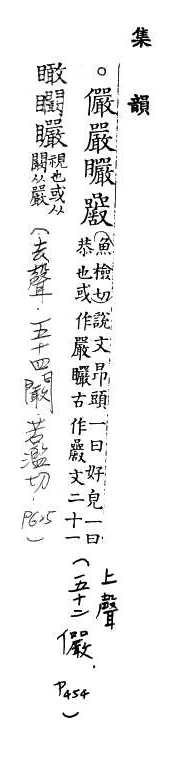 集韻
。儼嚴曮
魚檢切說文昂頭一曰好皃一曰
恭也或作嚴曮古作文二十一
(上聲
五十二
儼.
P454)
瞰矙
視也或从
闞从嚴
(去聲.五十四闞.苦濫切.
P625)